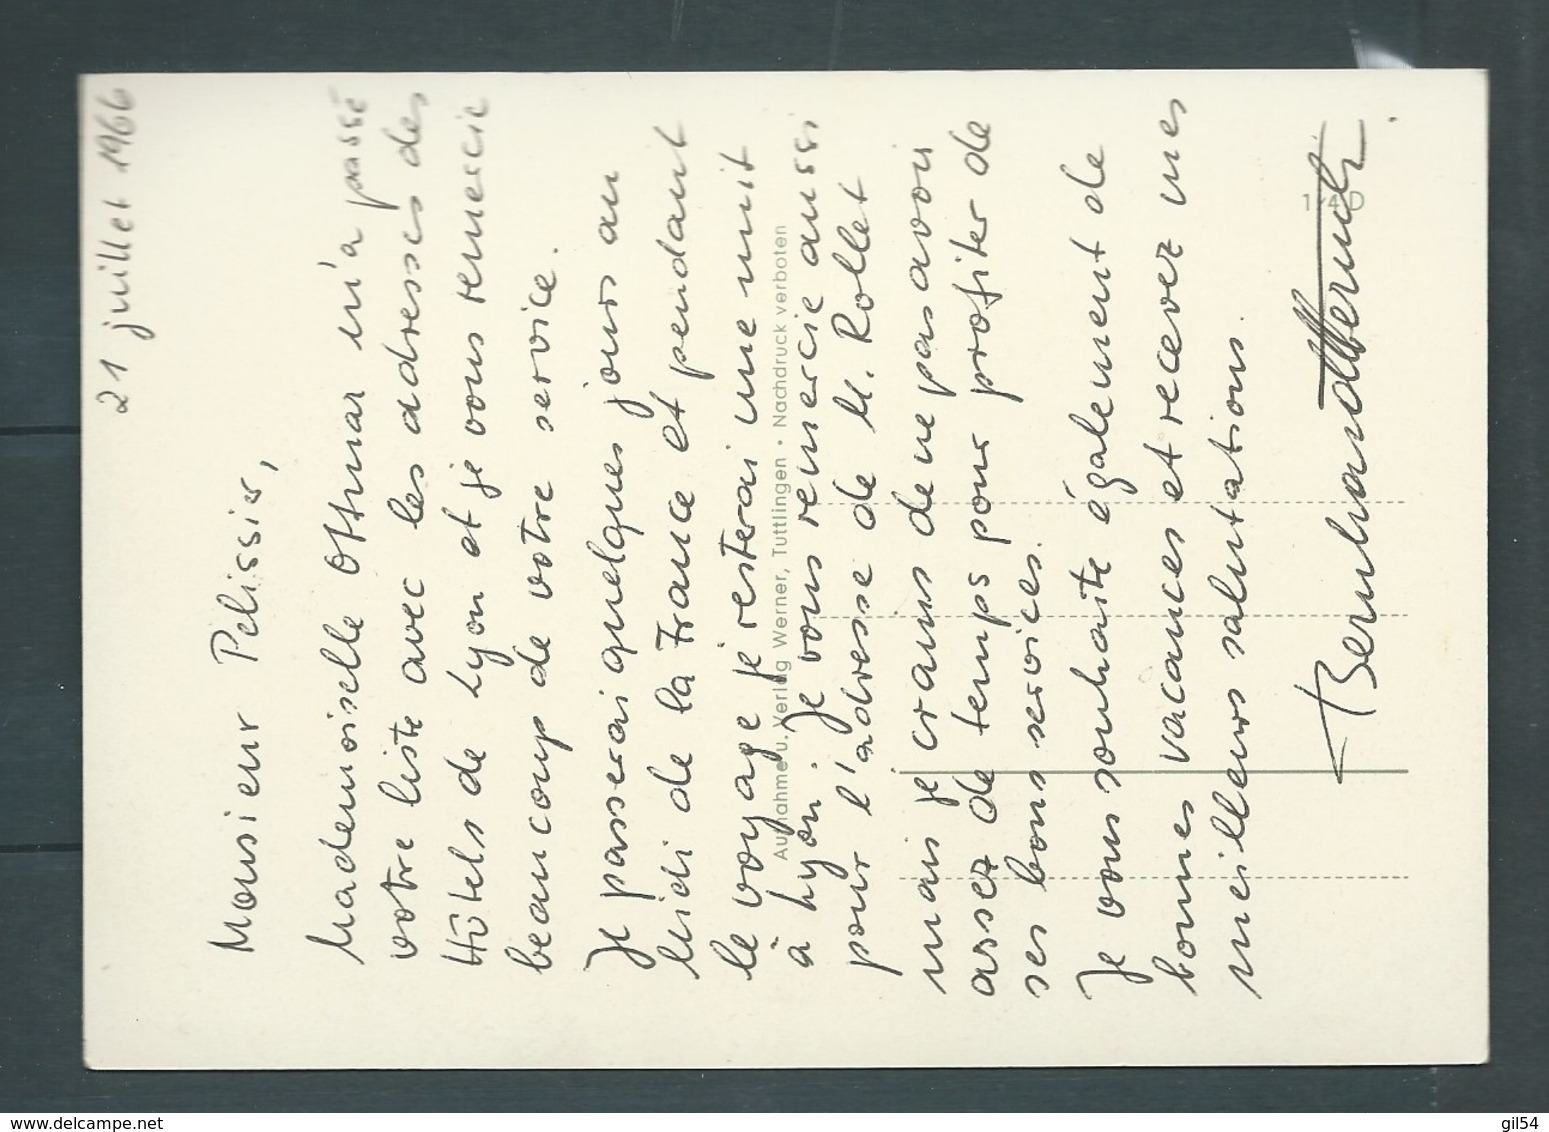 21 juillet 1966
Monsieur Pelissier,
Mademoiselle Othmar m'a passé
votre liste avec les adresses des
Hôtels de Lyon et je vous remercie
beaucoup de votre service.
Je passerai quelques jours au
Midi de la France et pendant
le voyage je resterai une nuit
à Lyon. Je vous remercie aussi
pour l'adresse de M. Rollet
mais je crains de ne pas avoir
assez de temps pour profiter de
ses bons services.
Je vous souhaite également de
bonnes vacances et recevez mes
meilleurs salutations.
Bernhard
Aufnahme u. Verlag Werner, Tuttlingen • Nachdruck verboten
www.delcampe.net
gil54